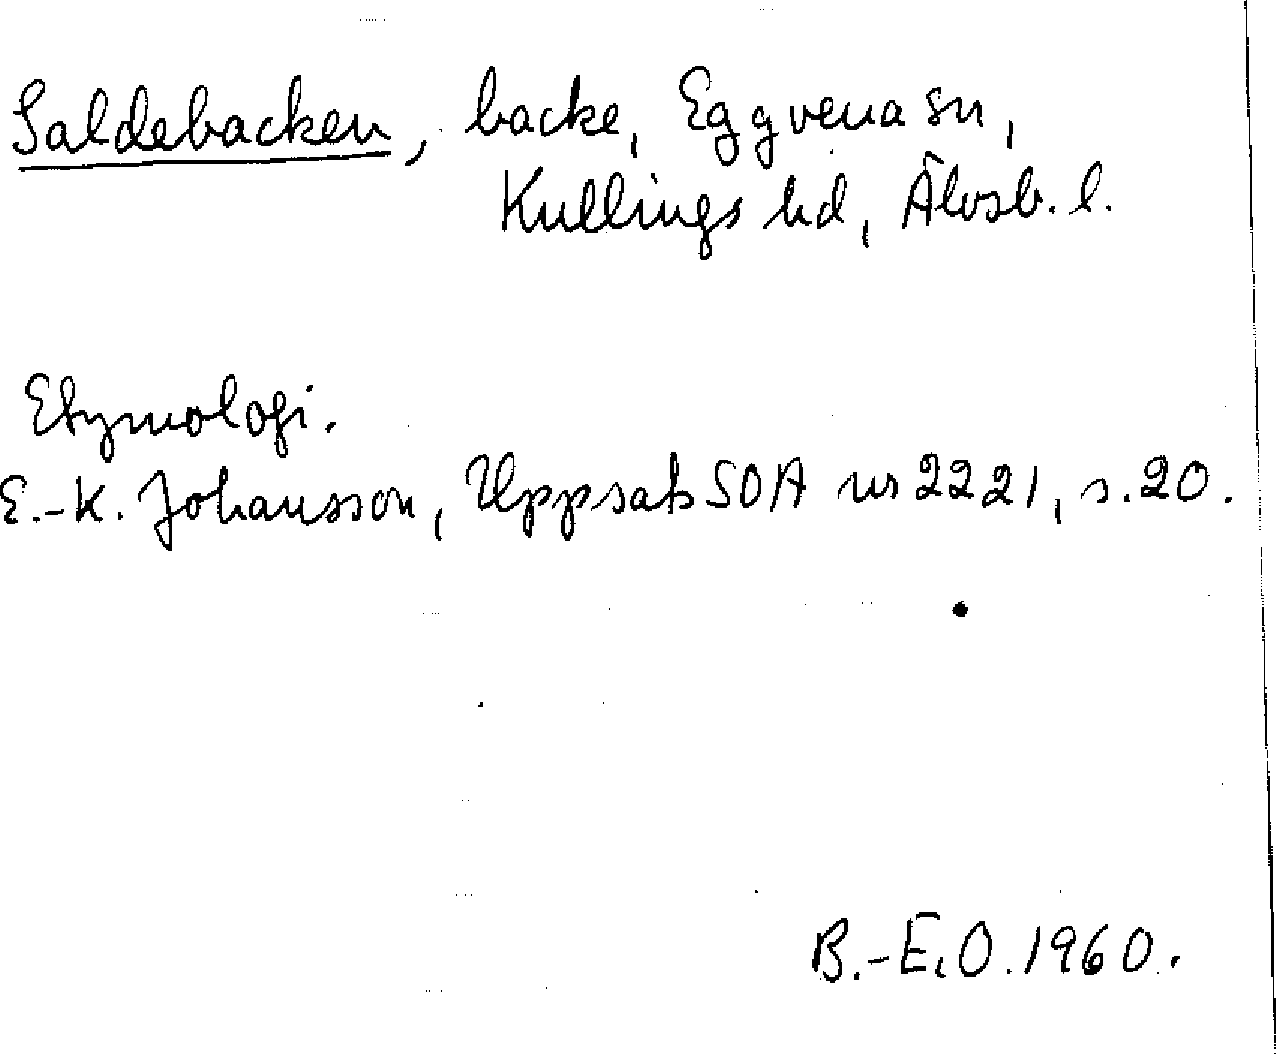 Saldebacken, backe, Eggvena sn,
Kullings hd, Älvsb. l.
Etymologi.
E.-K. Johansson, Uppsats SOA nr 2221, s. 20.
B.-E. O. 1960.